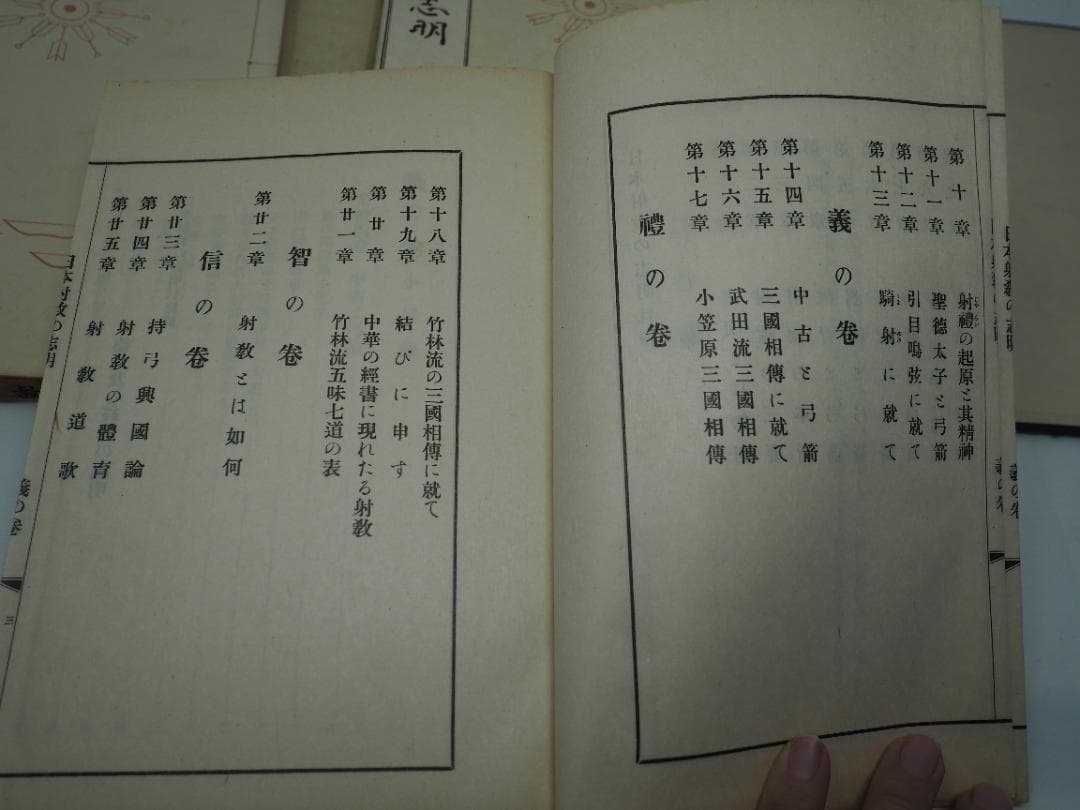 志明
日本射敎の志明
義の卷
第十章 射禮の起原と其精神
第十一章 聖德太子と弓箭
第十二章 引目鳴弦に就て
第十三章 騎射に就て
義の卷
第十四章 中古と弓箭
第十五章 三國相傳に就て
第十六章 武田流三國相傳
第十七章 小笠原三國相傳
禮の卷
第十八章 竹林流の三國相傳に就て
第十九章 結びに申す
第廿章 中華の經書に現れたる射敎
第廿一章 竹林流五味七道の表
智の卷
第廿二章 射敎とは如何
信の卷
第廿三章 持弓興國論
第廿四章 射敎の體育
第廿五章 射敎道歌
日本射敎の志明
義の卷
三